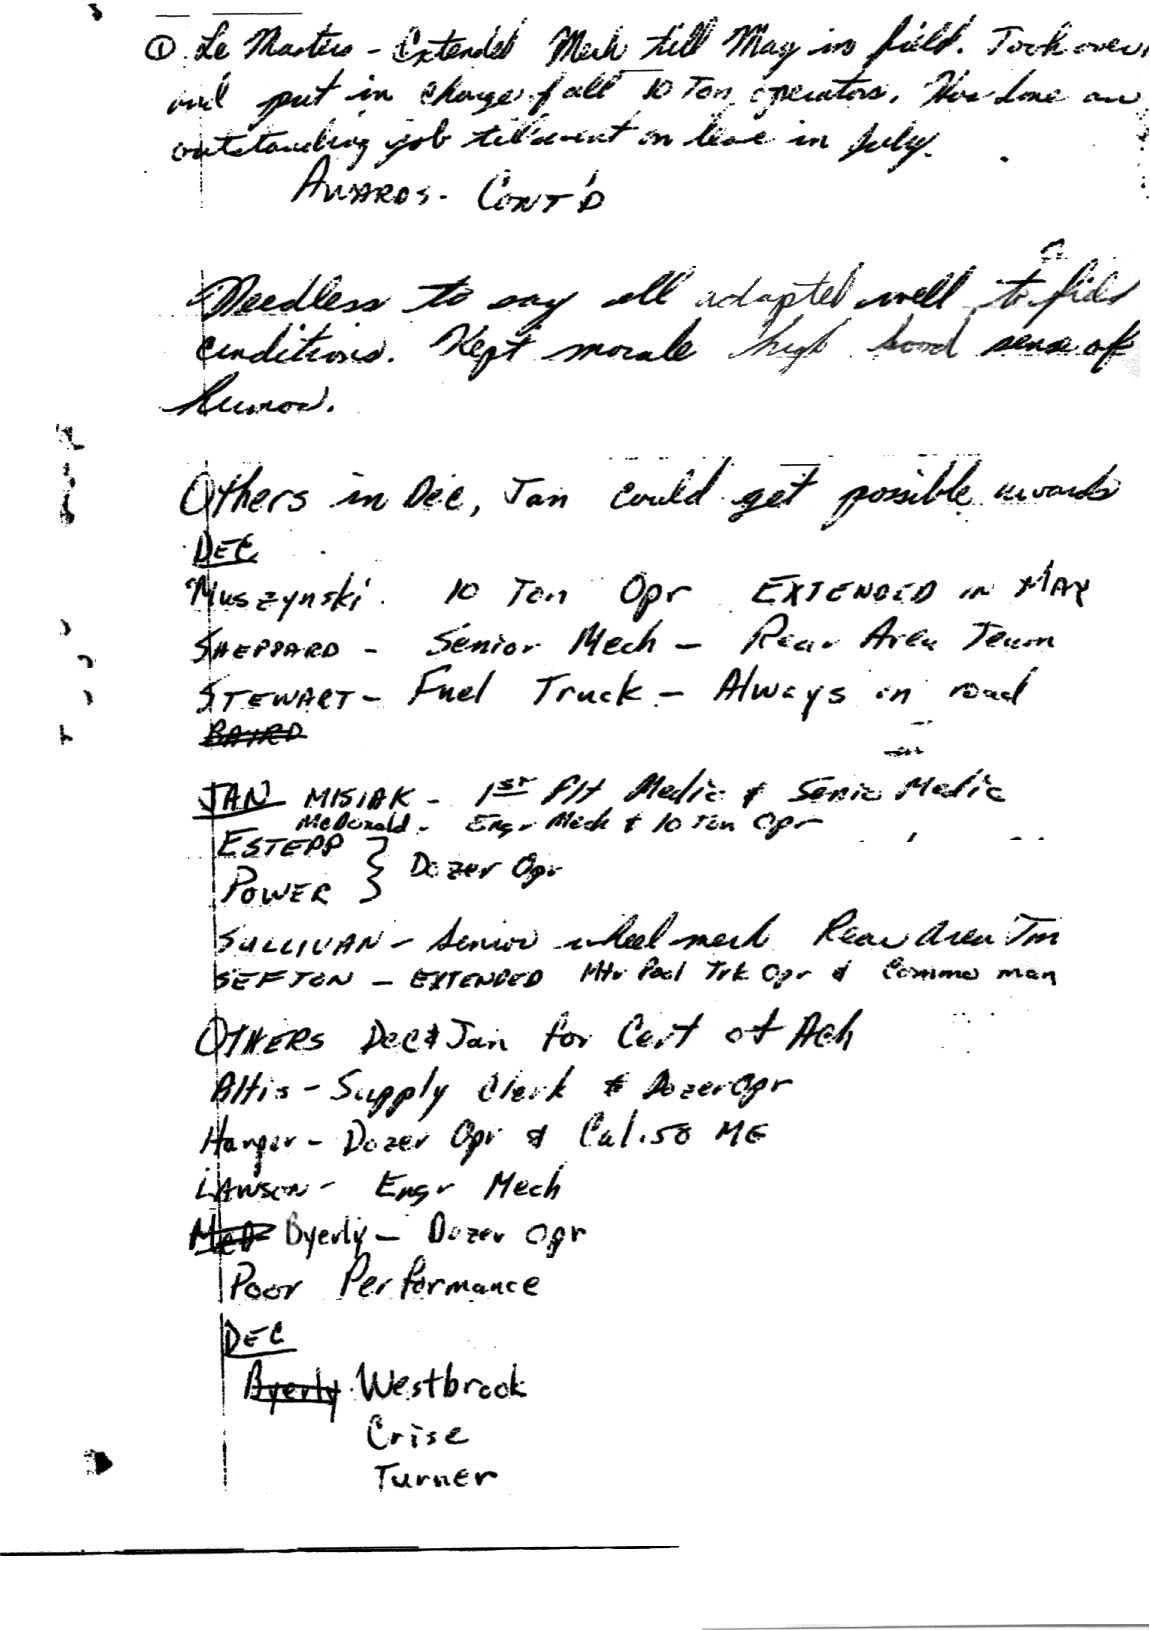 ① Le Masters - Extended Mech till May in field. Took over
and put in charge of all 10 Ton operators. Has done an
outstanding job till went on leave in July.
AWARDS - CONT'D
Needless to say all adapted well to field
conditions. Kept morale high good sense of
humor.
Others in Dec, Jan could get possible awards
DEC
Muszynski 10 Ton Opr EXTENDED in MAY
SHEPPARD - Senior Mech - Rear Area Team
STEWART - Fuel Truck - Always on road
BAIRD
JAN MISIAK - 1ST Plt Medic & Senior Medic
McDonald - Engr Mech & 10 Ton Opr
ESTEPP
POWER } Dozer Opr
SULLIVAN - Senior wheel mech Rear Area Tm
SEFTON - EXTENDED Mtr Pool Trk Opr & Commo man
OTHERS Dec & Jan for Cert of Ach
Altis - Supply Clerk & Dozer Opr
Harper - Dozer Opr & Cal .50 MG
LAWSON - Engr Mech
McD Byerly - Dozer Opr
Poor Performance
DEC
Byerly Westbrook
Crise
Turner